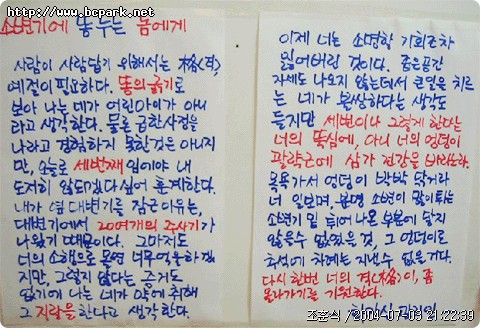 http://www.hcpark.net
소변기에 똥 누는 놈에게
사람이 사람답기 위해서는 格(격),
예절이 필요하다. 똥의 굵기로
보아 나는 네가 어린아이가 아니
라고 생각한다. 물론 급한사정을
나라고 경험하지 못한것은 아니지
만, 오늘로 세번째 임에야 내
도저히 안되겠다싶어 훈계한다.
내가 옆 대변기를 잠근이유는,
대변기에서 20여개의 주사기가
나왔기 때문이다. 그마저도
너의 소행으로 몰면 너무억울하겠
지만, 그렇지 않다는 증거도
없기에 나는 네가 약에 취해
그 지랄을 한다고 생각한다.
이제 너는 소명할 기회조차
잃어버린 것이다. 좁은공간
자세도 나오지 않는데서 큰일을 치르
는 네가 불쌍하다는 생각도
들지만 세번이나 그렇게 한다는
너의 뚝심에, 아니 너의 엉덩이
괄약근에 삼가 건강을 바라노라.
목욕가서 엉덩이 박박 닦거라
너 일보며, 분명 소변이 많이튀는
소변기 밑 튀어 나온 부분에 닿지
않을수 없었을 것, 그 엉덩이로
추석에 차례는 지낼수 없을거다.
다시 한번 너의 격(格)이, 좀
올라가기를 기원한다.
조훈식 / 2004-07-03 21:22:39